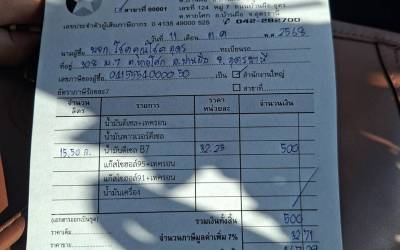 สาขาที่ 00001 เลขที่ 124 หมู่ 7 ถนนบ้านผือ
ต.หายโศก อ.บ้านผือ จ.อุดรธานี
เลขประจำตัวผู้เสียภาษีอากร 0 4135 49000 525 042-282700
วันที่ 11 เดือน ต.ค พ.ศ. 2568
นามผู้ซื้อ หจก. โชคคูณโชค อุดร ทะเบียนรถ
ที่อยู่ 108 ม.7 ต.หายโศก อ.บ้านผือ จ.อุดรธานี
เลขภาษีของผู้ซื้อ 0415554000050 เป็น สำนักงานใหญ่
อัตราภาษีร้อยละ7 สาขาที่
จำนวน ลิตร รายการ ราคา หน่วยละ จำนวนเงิน
น้ำมันดีเซล+เทครอน
น้ำมันพาวเวอร์ดีเซล
15.50 ล. น้ำมันดีเซล B7 32.25 500
แก๊สโซฮอล์95+เทครอน
แก๊สโซฮอล์91+เทครอน
น้ำมันเครื่อง
(เอกสารออกเป็นชุด) รวมเงินทั้งสิ้น 500
ราคาเดิม จำนวนภาษีมูลค่าเพิ่ม 7% 32 71